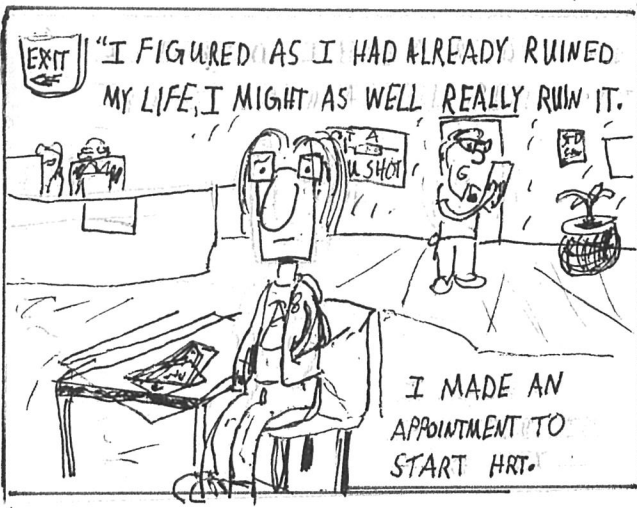 EXIT
"I FIGURED AS I HAD ALREADY RUINED
MY LIFE, I MIGHT AS WELL REALLY RUIN IT.
SHOT
I MADE AN
APPOINTMENT TO
START HRT.